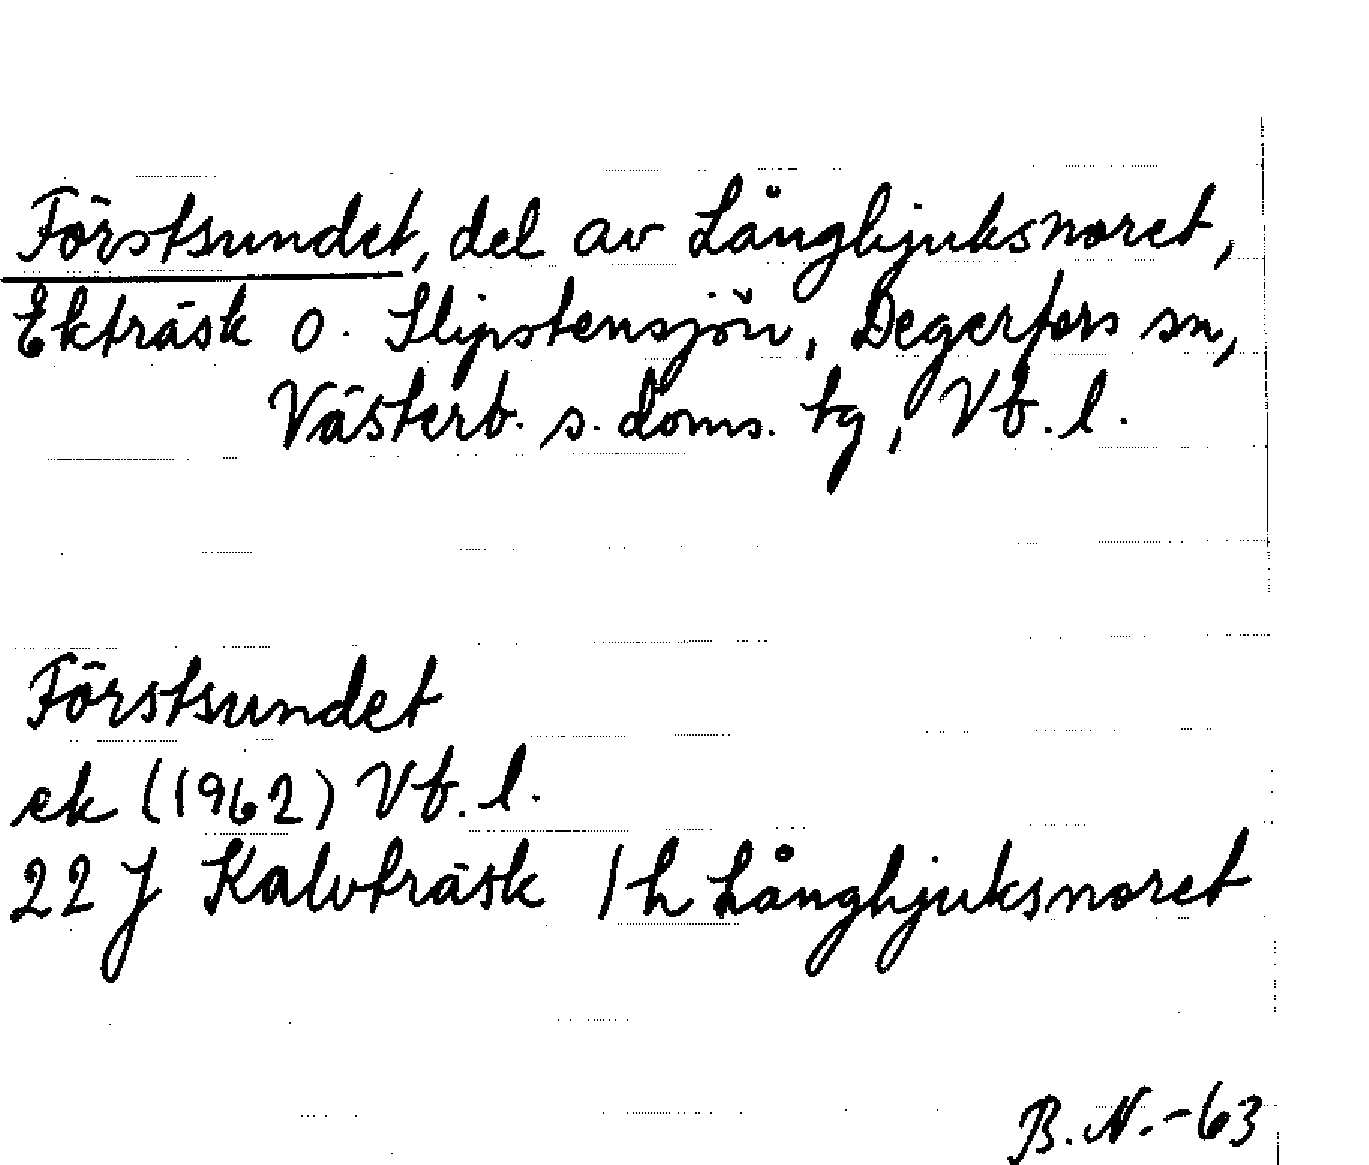 Förstsundet, del av Långhjuksnoret,
Ekträsk o. Slipstensjön, Degerfors sn,
Västerb. s. doms. tg, Vb. l.
Förstsundet
ek (1962) Vb. l.
22 J Kalvträsk /h Långhjuksnoret
B. N. -63